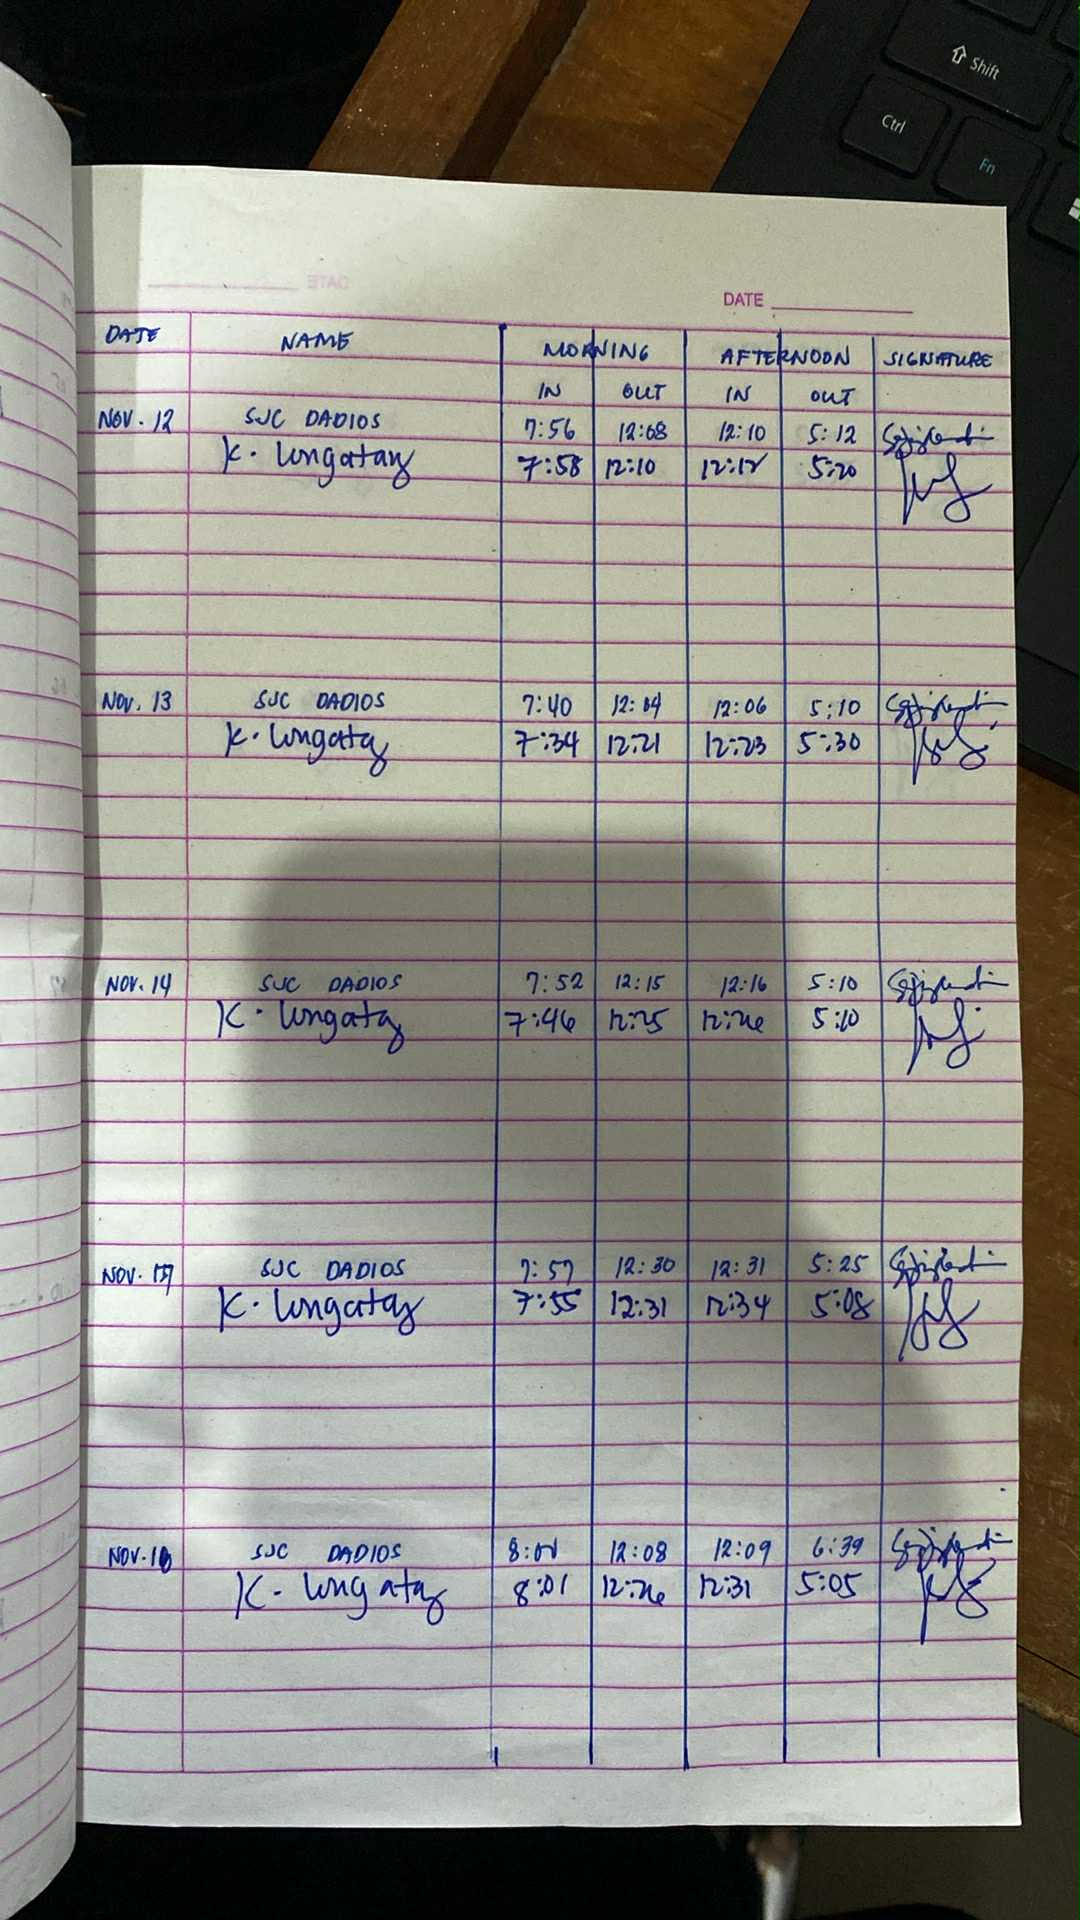 Shift
Ctrl
Fn
DATE
DATE
DATE NAME MORNING AFTERNOON SIGNATURE
IN OUT IN OUT
NOV. 12 SJC DADIOS 7:56 12:08 12:10 5:12
K. Lungatay 7:58 12:10 12:12 5:20
NOV. 13 SJC DADIOS 7:40 12:04 12:06 5:10
K. Lungatay 7:34 12:21 12:23 5:30
NOV. 14 SJC DADIOS 7:52 12:15 12:16 5:10
K. Lungatay 7:46 12:25 12:26 5:10
NOV. SJC DADIOS 7:57 12:30 12:31 5:25
K. Lungatay 7:55 12:31 12:34 5:08
NOV. SJC DADIOS 12:08 12:09 6:39
K. Lungatay 8:01 12:26 12:31 5:05